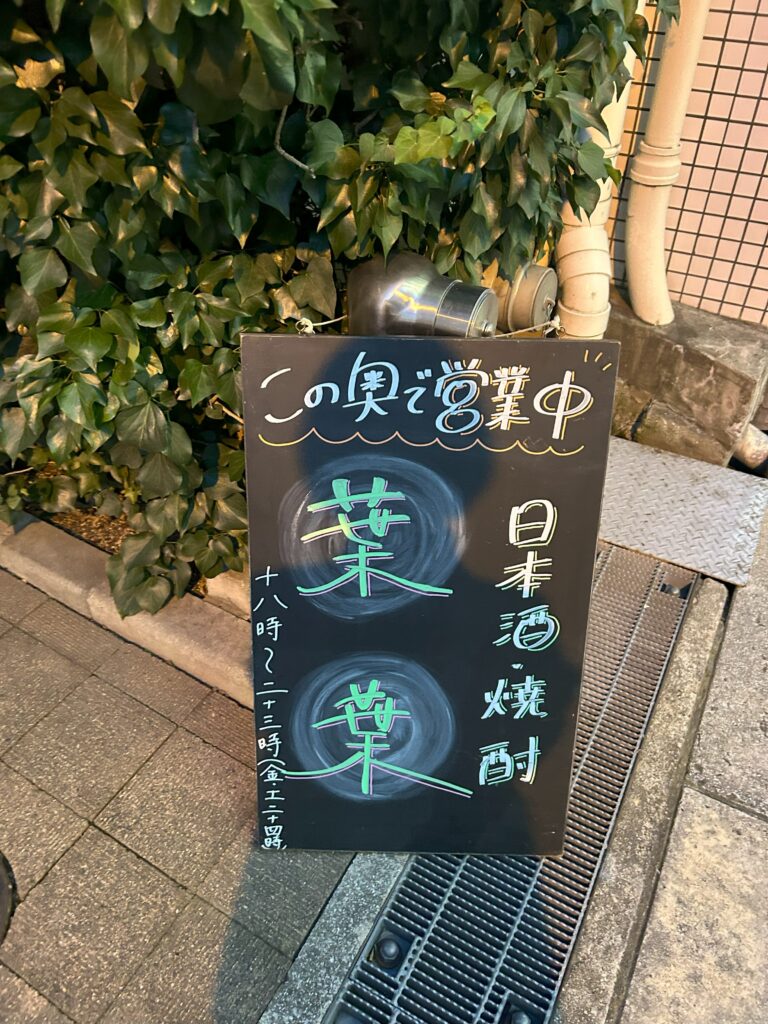 この奥で営業中
日本酒・焼酎
葉
葉
十八時〜二十三時(金・土二十四時)